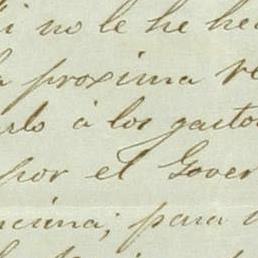 i no le he he
a proxima re
rlo à los gasto
por el Gover
ncina; para